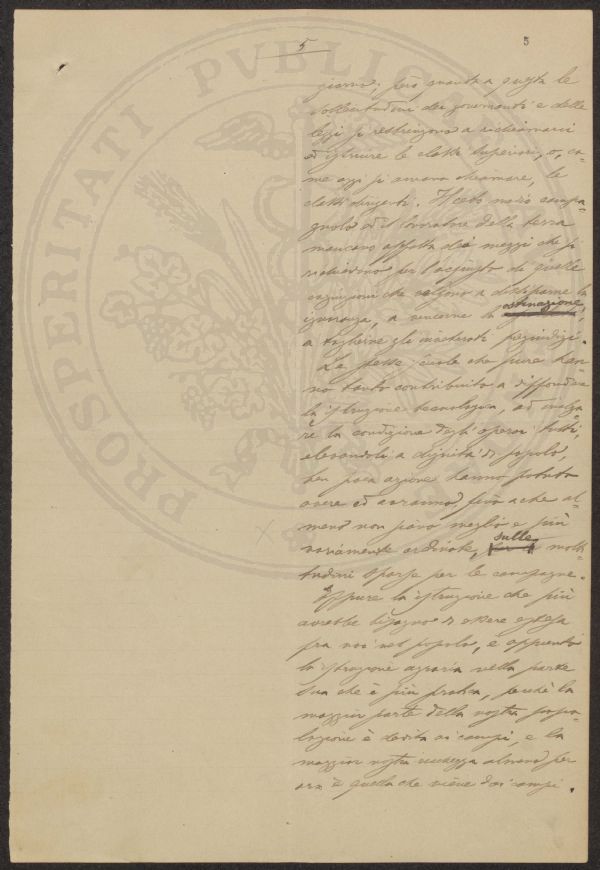 5
5
giorno; però quanto a questa le
sollecitudini dei governanti e delle
leggi si restringono a
ed istruire le classi superiori, o, co-
me oggi si amano chiamare, le
classi dirigenti. Il ceto medio campa-
gnolo ed il lavoratore della terra
mancano affatto dei mezzi che si
richiedono per l'acquisto di quelle
cognizioni che valgono a dissiparne la
ignoranza, a vincerne la ostinazione,
a toglierne gli inveterati pregiudizi.
Le stesse scuole che pure han-
no tanto contribuito a diffondere
la istruzione tecnologica, ad innalza-
re la condizione degli operai tutti,
elevandoli a dignità di popolo,
ben poca azione hanno potuto
avere ed avranno, fino a che al-
meno non siano meglio e più
variamente ordinate, sulle molti-
tudini sparse per le campagne.
Eppure la istruzione che più
avrebbe bisogno di essere estesa
fra noi nel popolo, è appunto
la istruzione agraria nella parte
sua che è più pratica, perché la
maggior parte della nostra popo-
lazione è dedita ai campi, e la
maggior nostra ricchezza almeno per
ora è quella che viene dai campi.
PROSPERITATI PVBLICAE